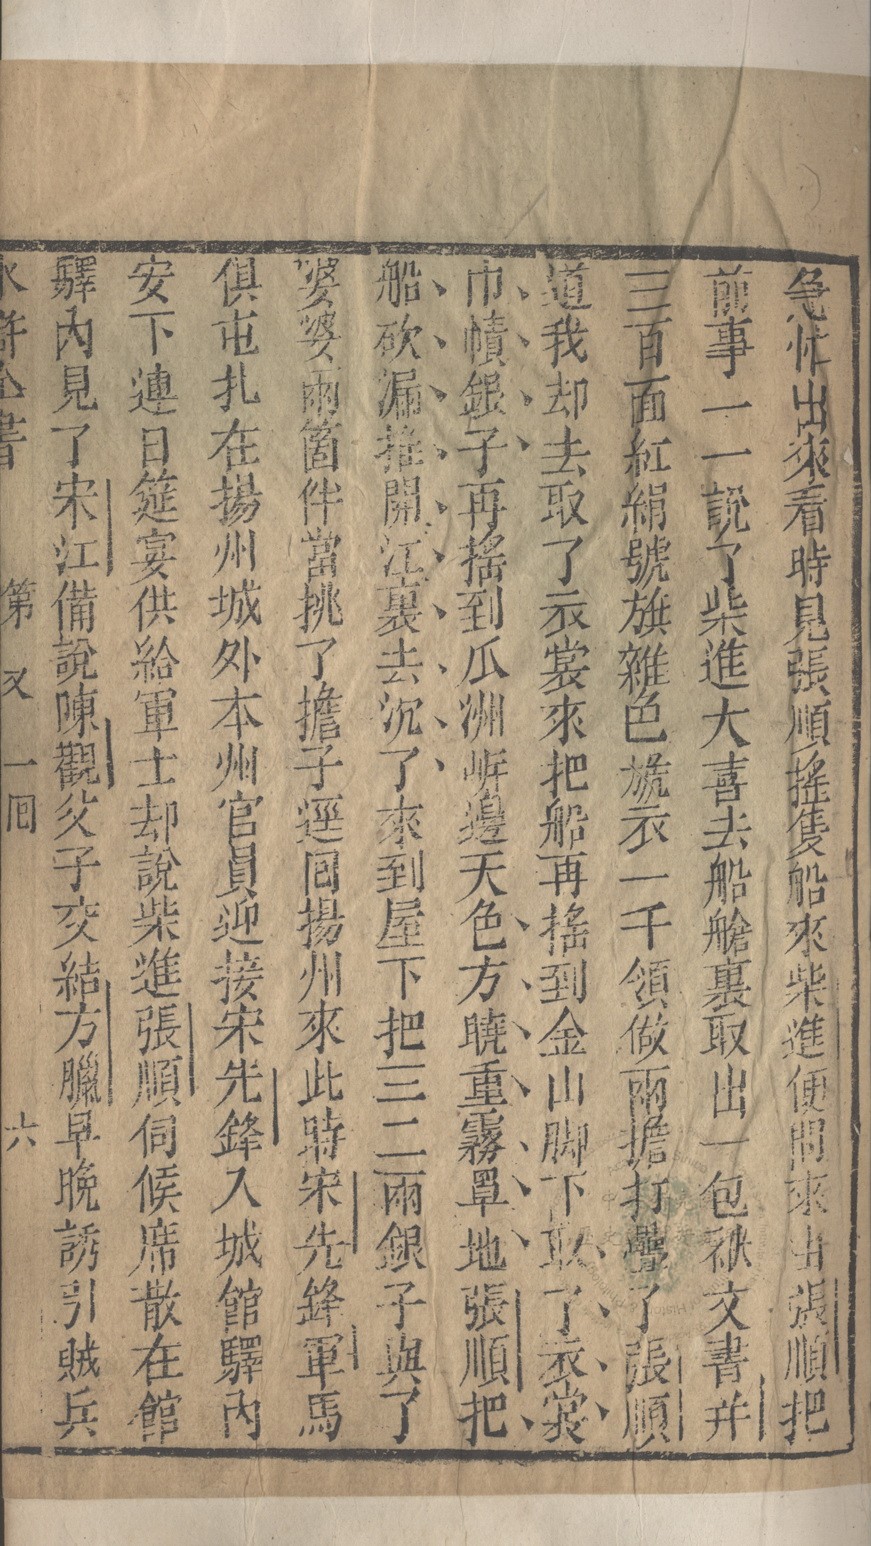 急忙出來看時見張順搖隻船來柴進便問來由張順把
前事一一說了柴進大喜去船艙裏取出一包袱文書并
三百面紅絹號旗雜色號衣一千領做兩擔打疊了張順
道我却去取了衣裳來把船再搖到金山脚下取了衣裳
巾幘銀子再搖到瓜洲岸邊天色方曉重霧罩地張順把
船砍漏推開江裏去沉了來到屋下把三二兩銀子與了
婆婆兩箇伴當挑了擔子逕回揚州來此時宋先鋒軍馬
俱屯扎在揚州城外本州官員迎接宋先鋒入城館驛內
安下連日筵宴供給軍士却說柴進張順伺候席散在館
驛內見了宋江備說陳觀父子交結方臘早晚誘引賊兵
水滸全書 第 又 一回 六